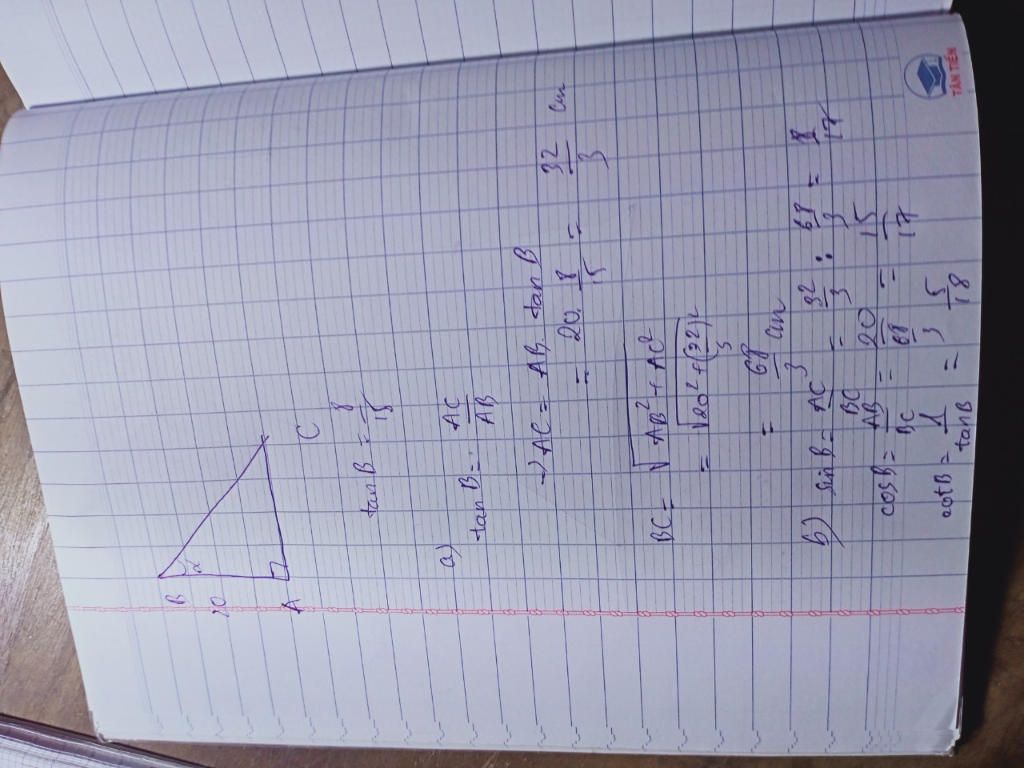 B
20
α
A
C
tan B = 8/15
a)
tan B = AC/AB
→ AC = AB . tan B
= 20. 8/15 = 32/3 cm
BC = √(AB² + AC²)
= √(20² + (32/3)²)
= 68/3 cm
b) sin B = AC/BC = 32/3 : 68/3 = 8/17
cos B = AB/BC = 20/(68/3) = 15/17
cot B = 1/tan B = 5/18
TÂN TIẾN